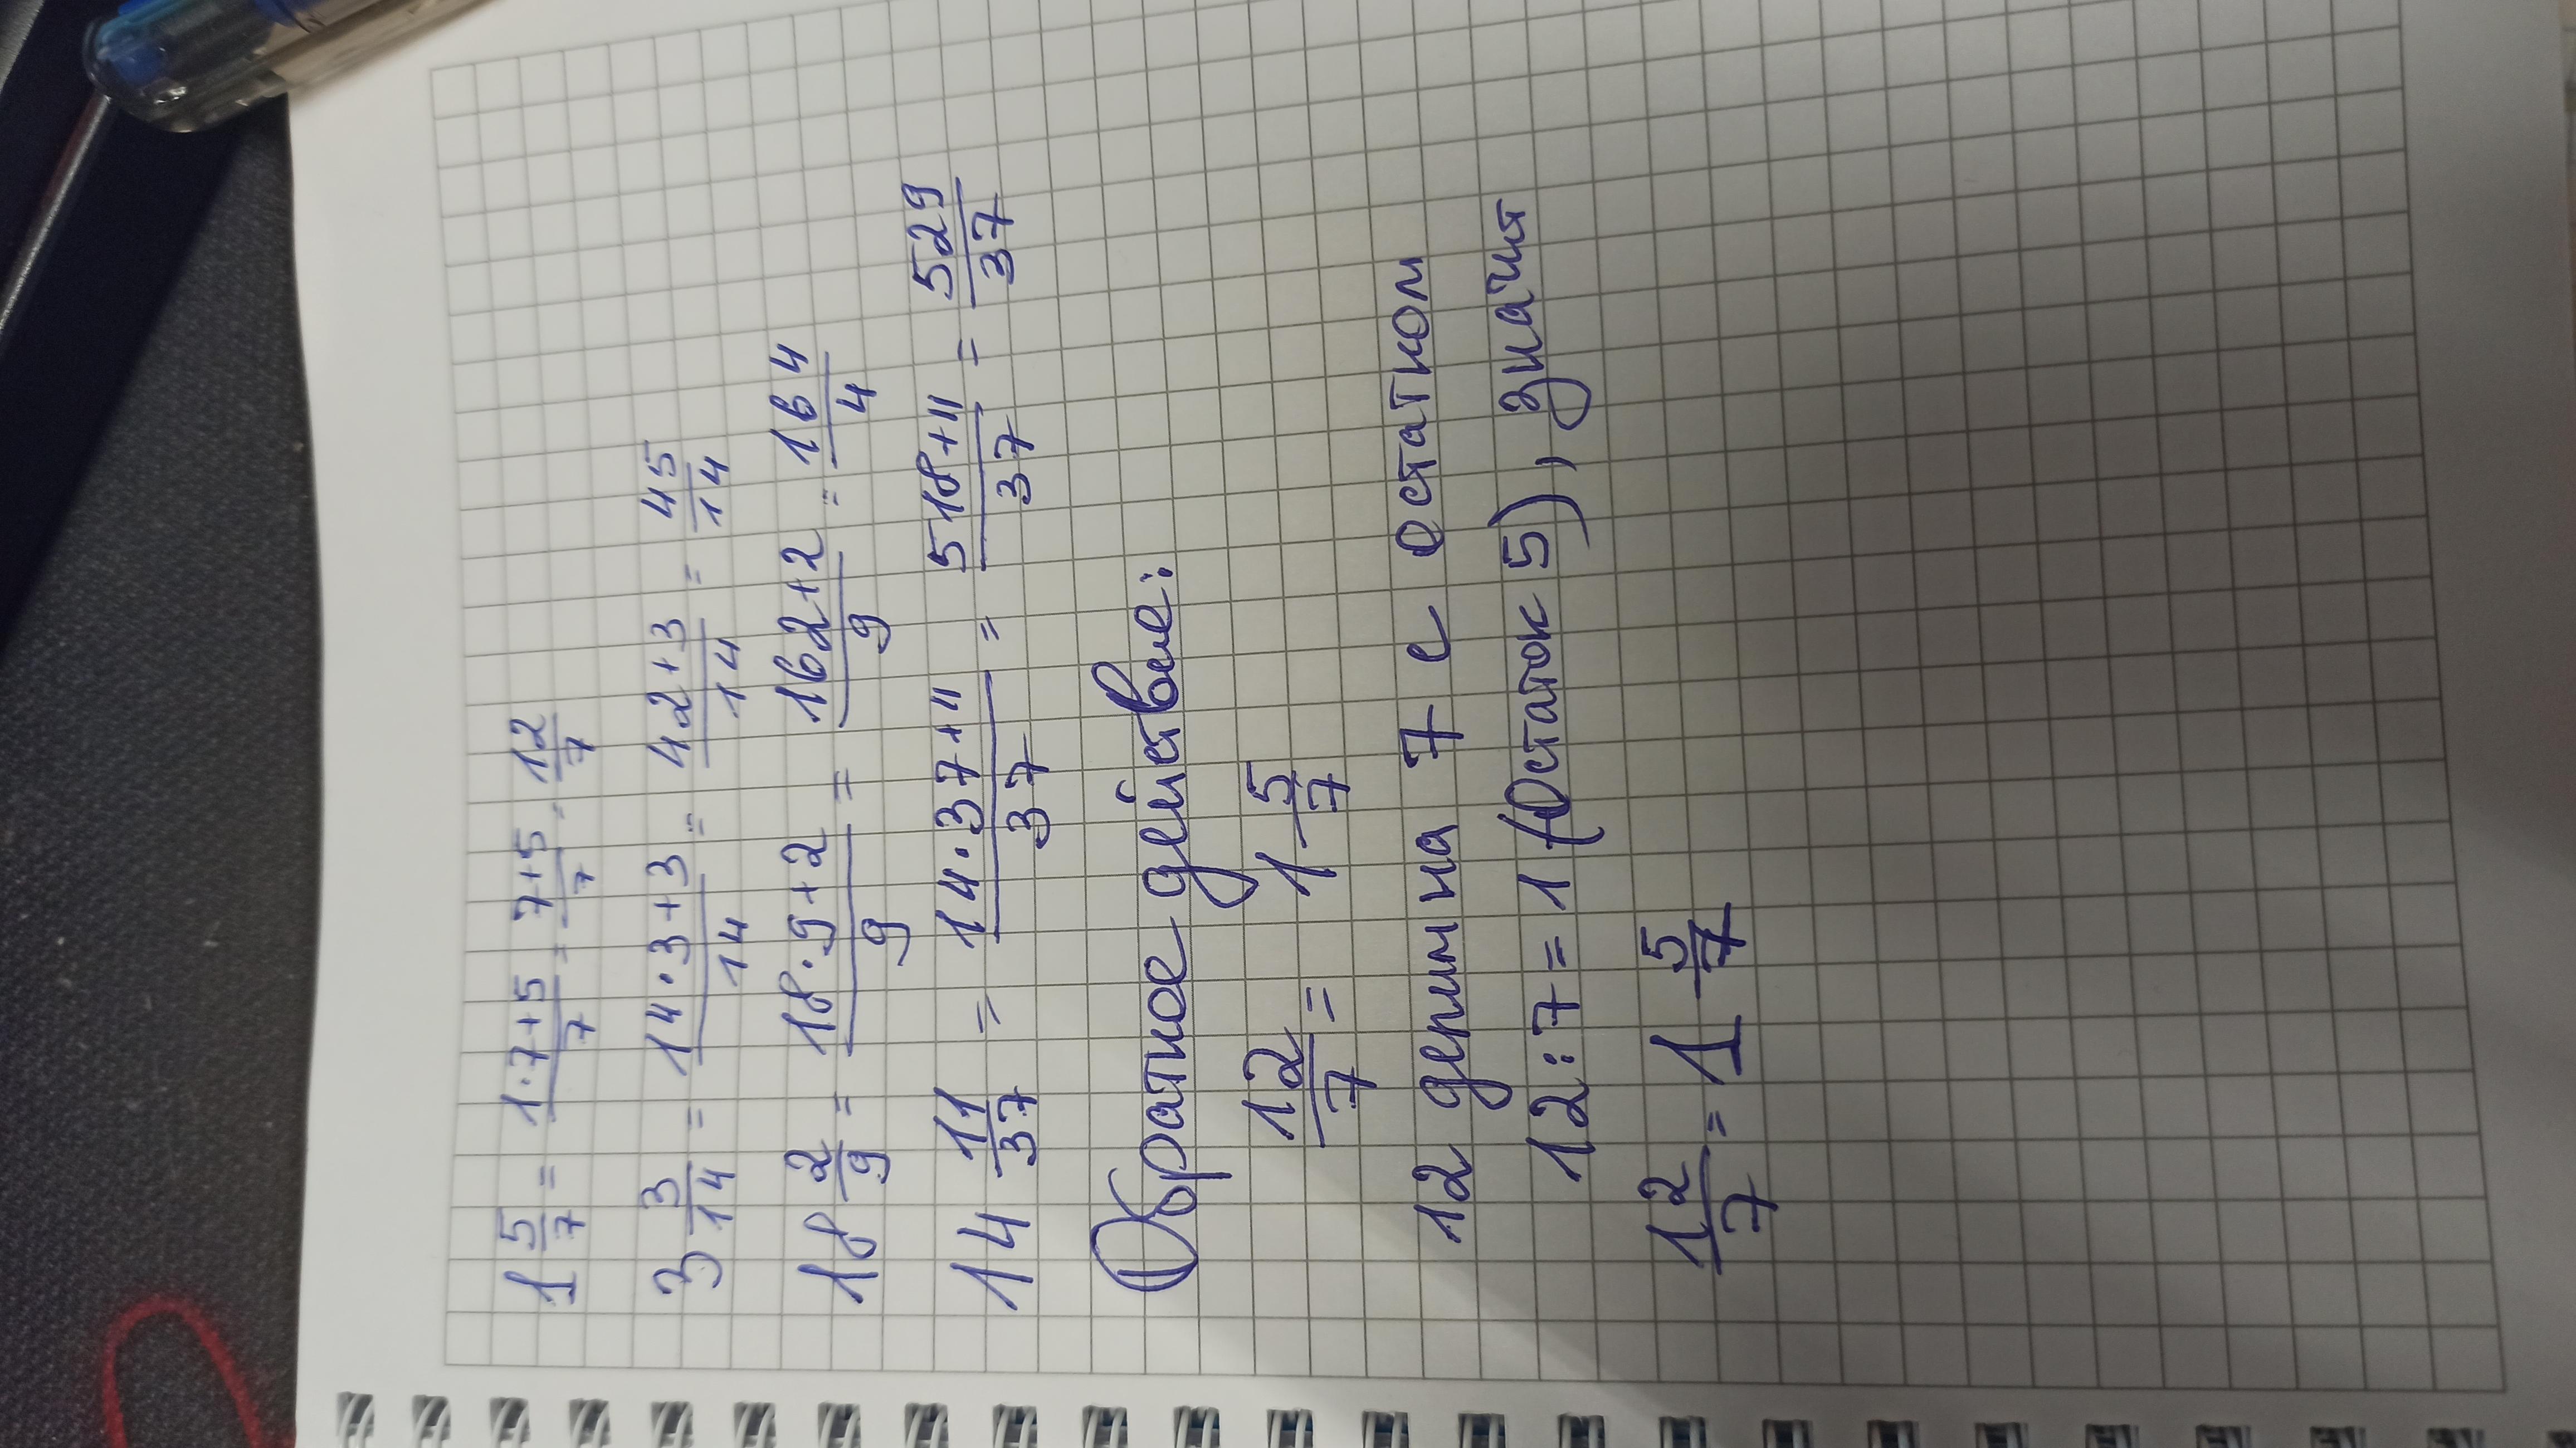 1 5/7 = (1·7+5)/7 = (7+5)/7 = 12/7
3 3/14 = (14·3+3)/14 = (42+3)/14 = 45/14
18 2/9 = (18·9+2)/9 = (162+2)/9 = 164/4
14 11/37 = (14·37+11)/37 = (518+11)/37 = 529/37
Обратное действие:
12/7 = 1 5/7
12 делим на 7 с остатком
12:7=1 (Остаток 5), значит
12/7 = 1 5/7